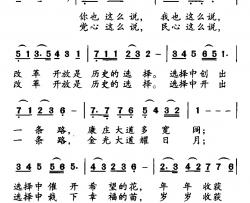 你也这么说，我也这么说，
党心这么说，民心这么说，
4 1 3 · 5 4 3 1 | 7 1 1 2 3 2 - | 3 4 5 6 5 1 ·
改革开放是历史的选择。选择中创出
改革开放是历史的选择。选择中开出
7 1 2 3 6 - | 7 · 7 7 6 5 3 2 | 1 2 3 5 -
一条路，康庄大道多宽阔；
一条路，金光大道耀日月；
3 4 5 5 6 5 1 | 7 1 2 3 6 - | 3 2 1 2 3
选择中催开希望的花，年年收获
选择中栽下幸福的苗，岁岁收获